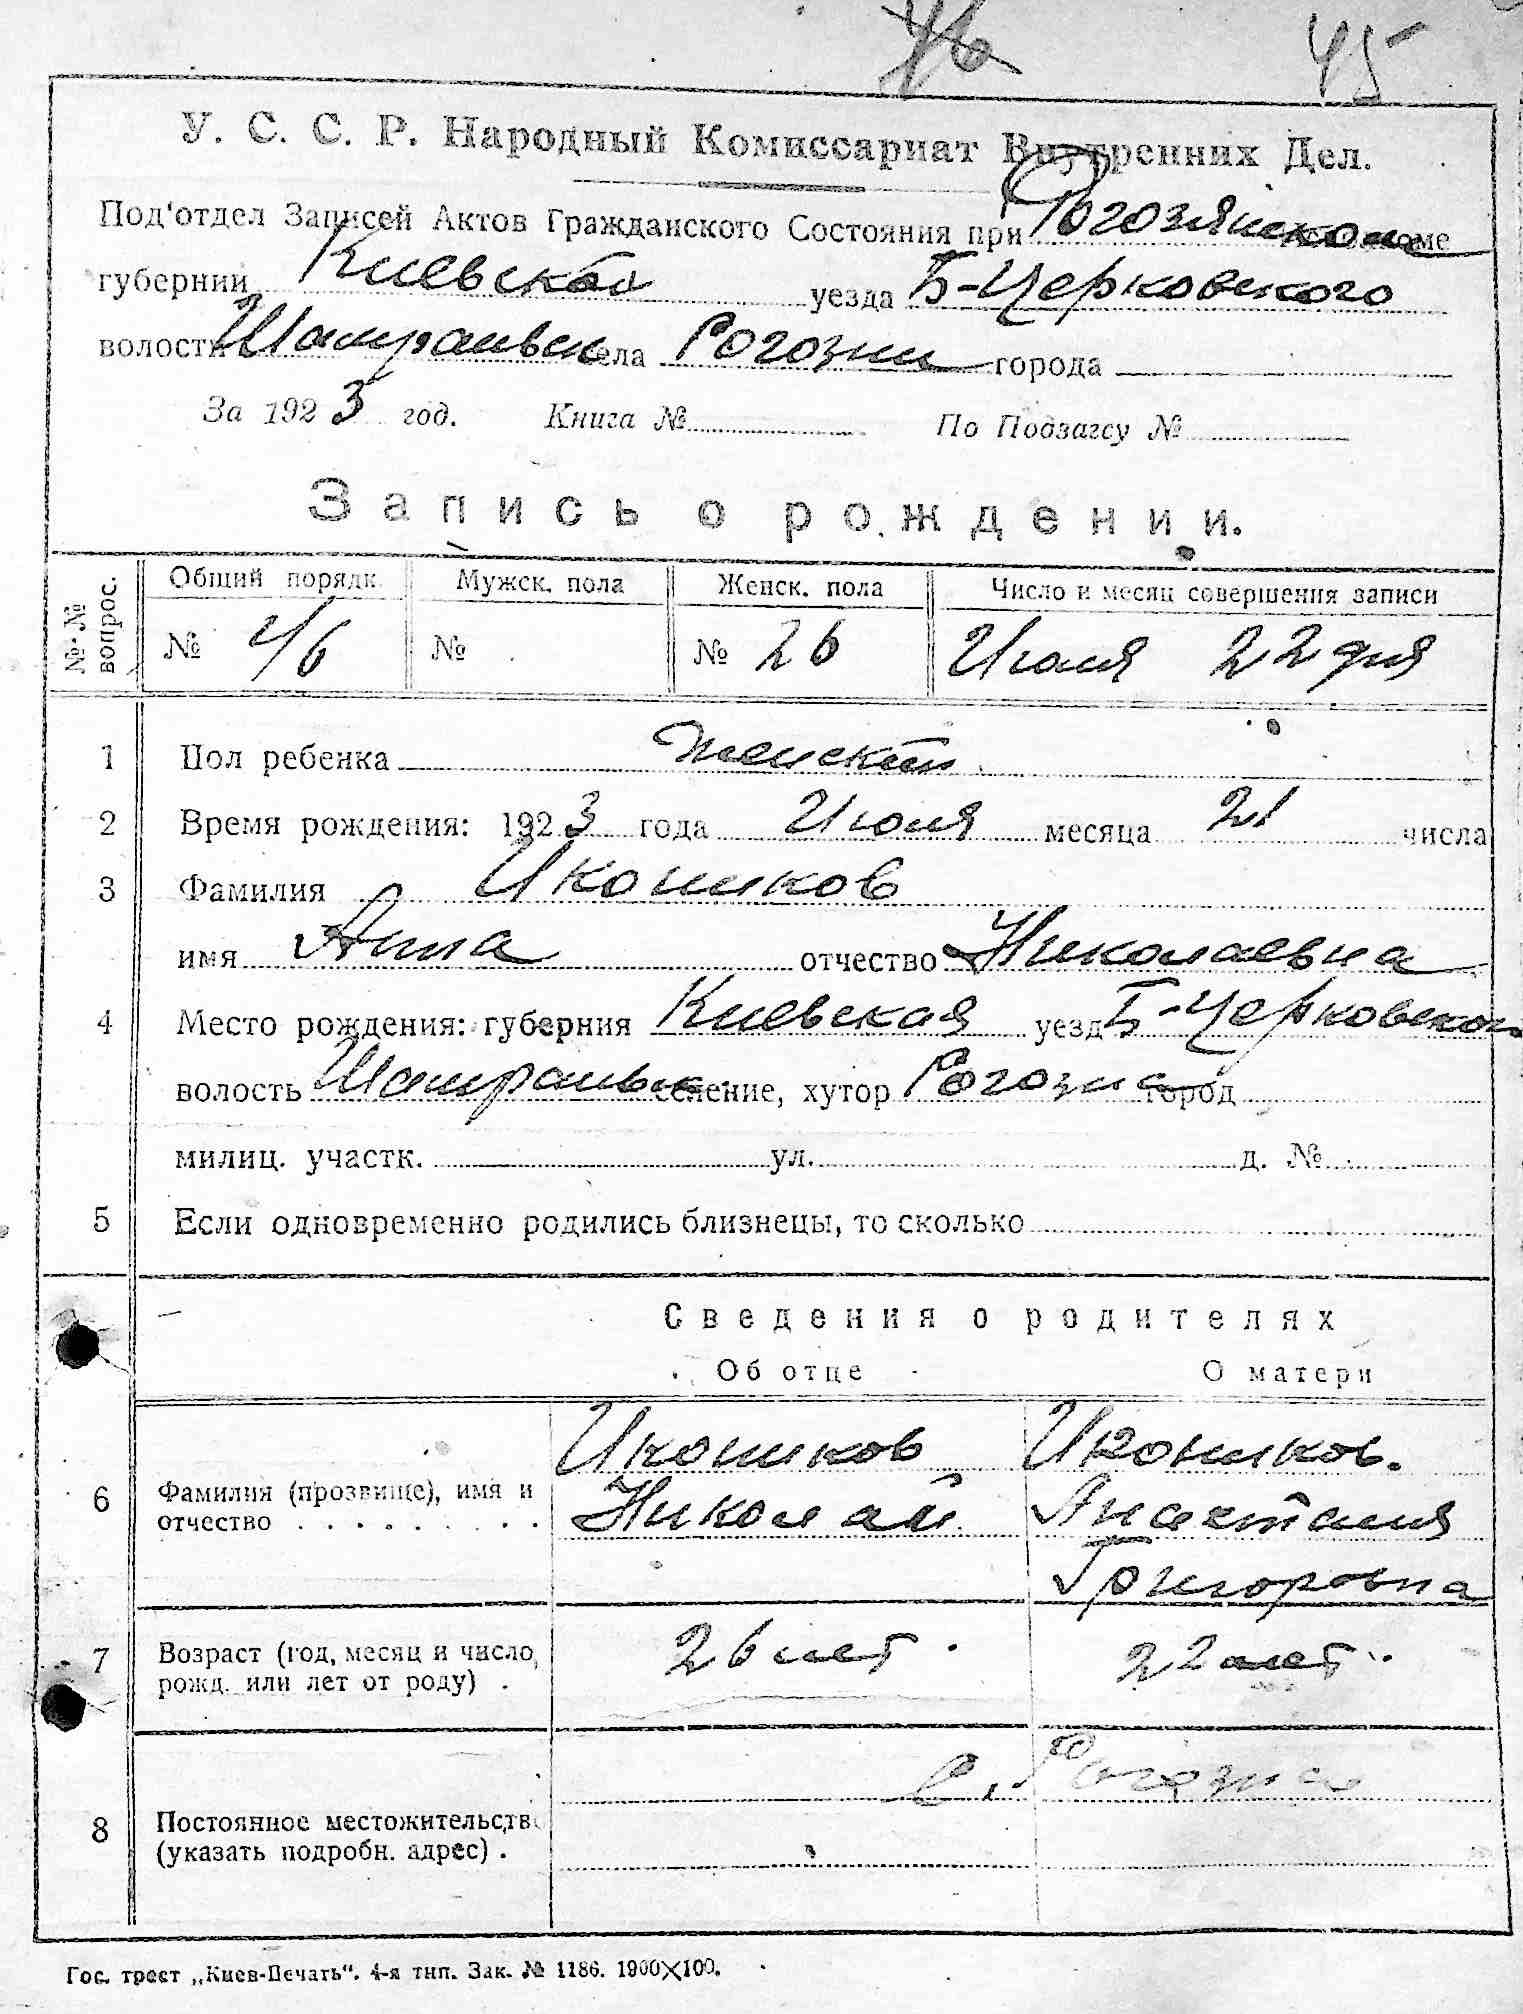 46 45
У. С. С. Р. Народный Комиссариат Внутренних Дел.
Под'отдел Записей Актов Гражданского Состояния при Рогозянском
губернии Киевской уезда Б-Церковского
волости Шамраевск села Рогозни города
За 1923 год. Книга № По Подзагсу №
Запись о рождении.
№№ вопрос. Общий порядк. Мужск. пола Женск. пола Число и месяц совершения записи
№ 46 № № 26 Июля 22 дня
1 Пол ребенка женский
2 Время рождения: 1923 года Июля месяца 21 числа
3 Фамилия Икоников
имя Анна отчество Николаевна
4 Место рождения: губерния Киевская уезд Б-Церковской
волость селение, хутор Рогозна город
милиц. участк. ул. д. №
5 Если одновременно родились близнецы, то сколько
Сведения о родителях
Об отце О матери
Икоников Икоников.
6 Фамилия (прозвище), имя и Николай Анастасия
отчество Григоровна
7 Возраст (год, месяц и число, 26 лет. 22 лет.
рожд. или лет от роду) .
с. Рогозна
8 Постоянное местожительств
(указать подробн. адрес) .
Гос. трест „Киев-Печать“. 4-я тип. Зак. № 1186. 1900×100.